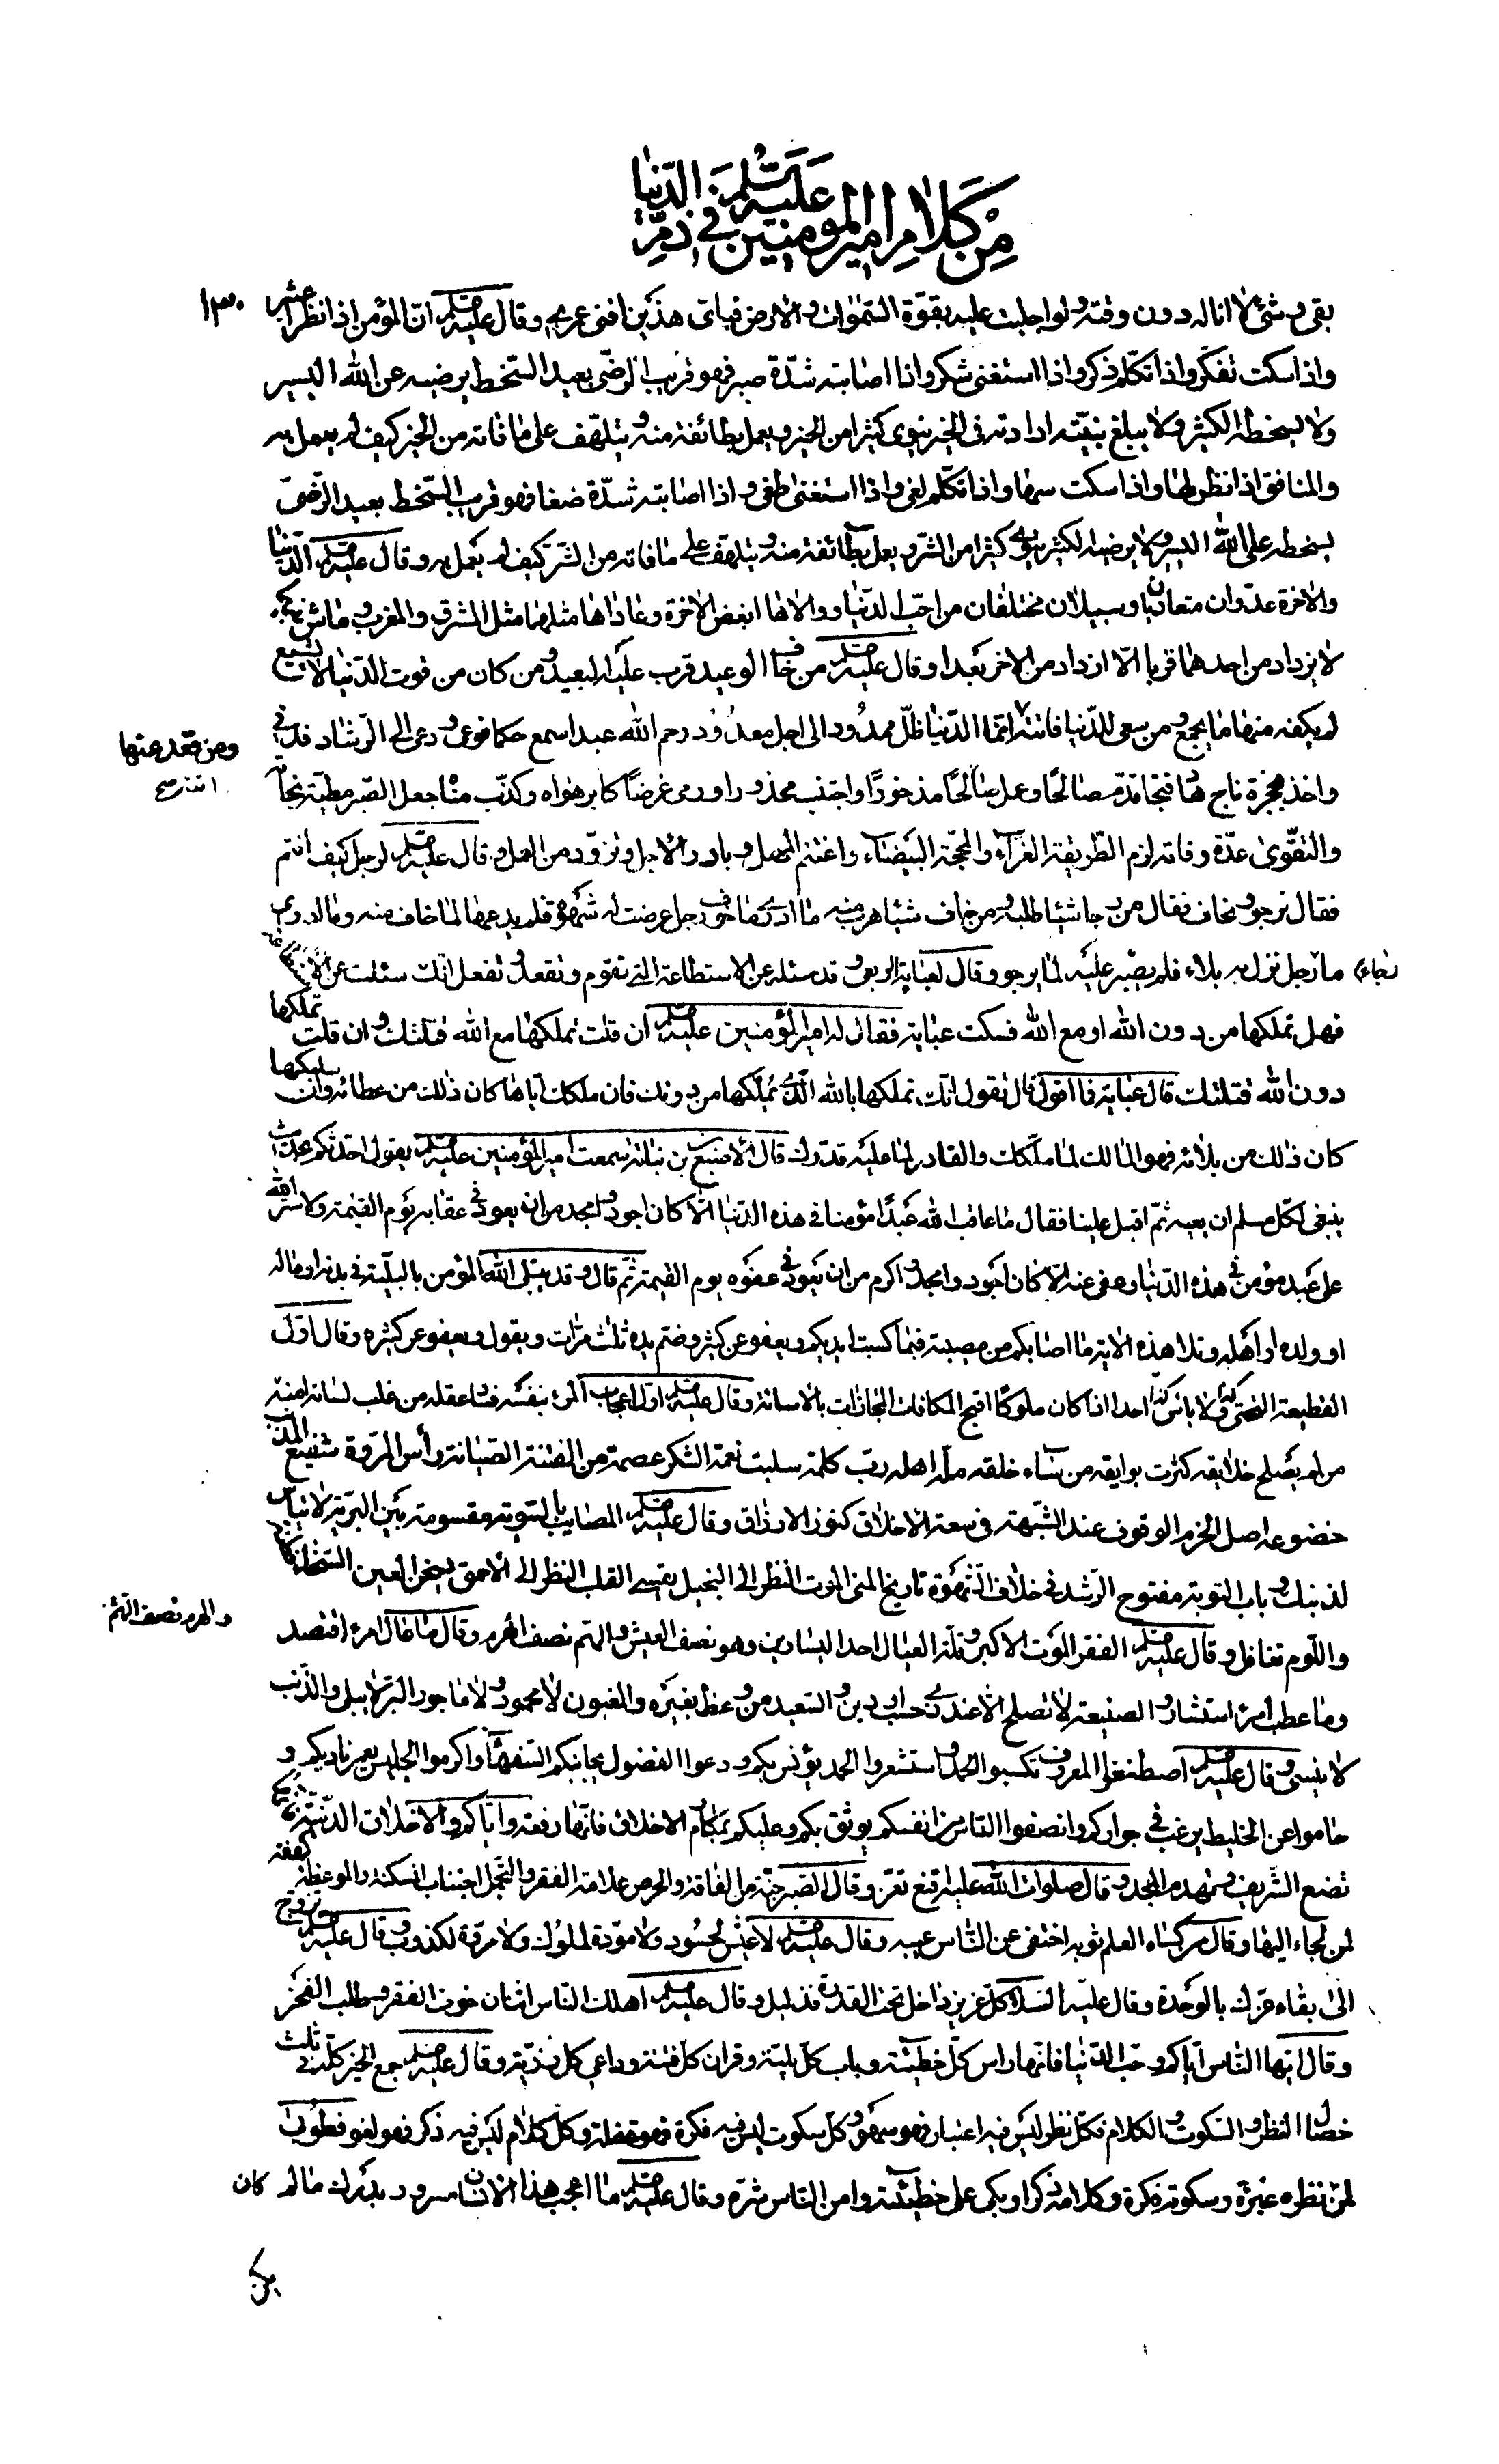 من كلام امير المومنين عليه السلم في ذم الدنيا
١٣٠
بقى وشئ لا اناله دون وقته ولو اجلبت عليه بقوة السموات والارض فباى هذين افنى عمرى وقال عليه السلم ان المؤمن اذا نظر اعتبر
واذا سكت تفكر واذا تكلم ذكر واذا استغنى شكر واذا اصابته شدة صبر فهو قريب الرضى بعيد السخط يرضيه عن الله اليسير
ولا يسخطه الكثير ولا يبلغ بنيته ارادته فى الخير ينوى كثيرا من الخير ويعمل بطائفة منه ويتلهف على ما فاته من الخير كيف لم يعمل به
والمنافق اذا نظر لها واذا سكت سها واذا تكلم لغى واذا استغنى طغى واذا اصابته شدة ضغا فهو قريب السخط بعيد الرضى
يسخطه على الله اليسير ولا يرضيه الكثير ينوى كثيرا من الشر ويعمل بطائفة منه ويتلهف على ما فاته من الشر كيف لم يعمل به وقال عليه السلم الدنيا
والاخرة عدوان متعاديان وسبيلان مختلفان من احب الدنيا ووالاها ابغض الاخرة وعاداها مثلهما مثل المشرق والمغرب وماش بينهما
لا يزداد من احدهما قربا الا ازداد من الاخر بعدا وقال عليه السلم من خاف الوعيد قرب عليه البعيد ومن كان من قوت الدنيا لا يشبع
لم يكفه منها ما يجمع ومن سعى للدنيا فاتته انما الدنيا ظل ممدود الى اجل معدود رحم الله عبدا سمع حكما فوعى ودعى الى الرشاد فدنى
ومن قعد عنها
اتته صح
واخذ بحجزة ناج هاد فنجا قدم صالحا وعمل صالحا مذخورا واجتنب محذورا ورمى غرضا كابر هواه وكذب مناه جعل الصبر مطية نجاته
والتقوى عدة وفاته لزم الطريقة الغراء والمحجة البيضاء واغتنم المهل وبادر الاجل وتزود من العمل وقال عليه السلم لرجل كيف انتم
فقال نرجو ونخاف فقال من رجا شيئا طلبه ومن خاف شيئا هرب منه ما ادرى ما خوف رجل عرضت له شهوة فلم يدعها لما خاف منه وما ادرى
ما رجاء رجل نزل به بلاء فلم يصبر عليه لما يرجو وقال لعباية الربعى وقد سئله عن الاستطاعة التى تقوم وتقعد وتفعل انك سئلت عن الاستطاعة
فهل تملكها من دون الله او مع الله فسكت عباية فقال له امير المؤمنين عليه السلم ان قلت تملكها مع الله قتلتك وان قلت تملكها
دون الله قتلتك قال عباية فما اقول قال تقول انك تملكها بالله الذى يملكها من دونك فان ملكك اياها كان ذلك من عطائه وان سلبكها
كان ذلك من بلائه فهو المالك لما ملكك والقادر لما عليه قدرك قال الاصبغ بن نباتة سمعت امير المؤمنين عليه السلم يقول احدثكم بحديث
ينبغى لكل مسلم ان يعيه ثم اقبل علينا فقال ما عاقب الله عبدا مؤمنا فى هذه الدنيا الا كان اجود وامجد من ان يعود فى عقابه يوم القيمة ولا ستر الله
على عبد مؤمن فى هذه الدنيا وعفى عنه الا كان اجود وامجد واكرم من ان يعود فى عفوه يوم القيمة ثم قال وقد يبتلى الله المؤمن بالبلية فى بدنه او ماله
او ولده او اهله وتلا هذه الاية ما اصابكم من مصيبة فبما كسبت ايديكم ويعفو عن كثير وضم يده ثلث مرات ويقول ويعفو عن كثير وقال اول
القطيعة السجا ولا تاس احدا اذا كان ملوكا اقبح المكافات المجازات بالاسائة وقال عليه السلم اول اعجاب المرء بنفسه فساد عقله من غلب لسانه امنه
من لم يصلح خلايقه كثرت بوايقه من ساء خلقه مله اهله رب كلمة سلبت نعمة الشكر عصمة من الفتنة الصيانة رأس المروة شفيع المذنب
خضوعه اصل الحزم الوقوف عند الشبهة فى سعة الاخلاق كنوز الارزاق وقال عليه السلم المصايب بالسوية مقسومة بين البرية لا تياس
لذنبك وباب التوبة مفتوح الرشد فى خلاف الشهوة تاريخ المنى الموت النظر الى البخيل يقسى القلب النظر الى الاحمق يسخن العين السخاء
واللؤم تغافل وقال عليه السلم الفقر الموت الاكبر وقلة العيال احد اليسارين وهو نصف العيش والهم نصف الهرم وقال ما عال امرء اقتصد
والهرم نصف الهم
وما عطب امرء استشار والصنيعة لا تصلح الا عند ذى حسب او دين والسعيد من وعظ بغيره والمغبون لا محمود ولا ماجور البر لا يبلى والذنب
لا ينسى وقال عليه السلم اصطنعوا المعروف تكسبوا الحمد واستشعروا الحمد يؤنس بكم ودعوا الفضول يجانبكم السفهاء واكرموا الجليس يعمر ناديكم و
حاموا عن الخليط يرغب فى جواركم وانصفوا الناس من انفسكم يوثق بكم وعليكم بمكارم الاخلاق فانها رفعة واياكم والاخلاق الدنية فانها
تضع الشريف وتهدم المجد وقال صلوات الله عليه اقنع تعز وقال الصبر جنة من الفاقة والحرص علامة الفقر والتجمل اجتناب المسكنة والموعظة كهف
لمن لجاء اليها وقال من كساه العلم ثوبه اختفى عن الناس عيبه وقال عليه السلم لا عيش لحسود ولا مودة لملوك ولا مروة لكذوب وقال عليه السلم تروح
الى بقاء عزك بالوحدة وقال عليه السلام كل عزيز داخل تحت القدرة فذليل وقال عليه السلم اهلك الناس اثنان خوف الفقر وطلب الفخر
وقال ايها الناس اياكم وحب الدنيا فانها راس كل خطيئة وباب كل بلية وقران كل فتنة وداعى كل رزية وقال عليه السلم جمع الخير كله فى ثلث
خصال النظر والسكوت والكلام فكل نظر ليس فيه اعتبار فهو سهو وكل سكوت ليس فيه فكرة فهو غفلة وكل كلام ليس فيه ذكر فهو لغو فطوبى
لمن نظره عبرة وسكوته فكرة وكلامه ذكرا وبكى على خطيئته وامن الناس شره وقال عليه السلم ما اعجب هذا الانسان مسرور بدرك ما لم كان
يكن